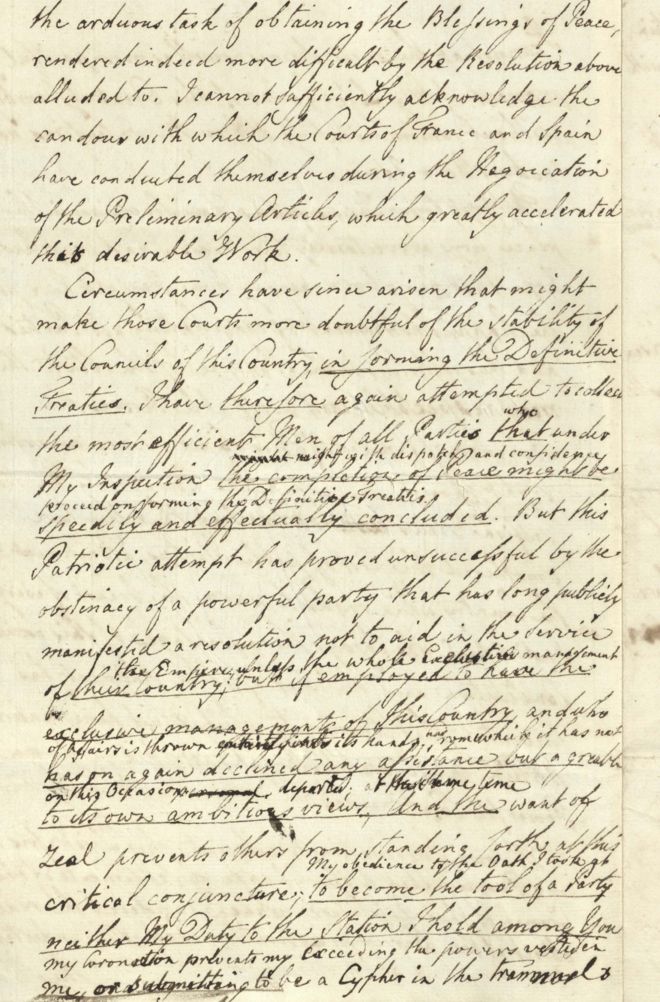 the arduous task of obtaining the Blessings of Peace,
rendered indeed more difficult by the Resolution above
alluded to. I cannot sufficiently acknowledge the
candour with which the Courts of France and Spain
have conducted themselves during the Negociation
of the Preliminary Articles, which greatly accelerated
this desirable Work.
Circumstances have since arisen that might
make those Courts more doubtful of the stability of
the Councils of this Country, in forming the Definitive
Treaties. I have therefore again attempted to collect
who
the most efficient Men of all Parties that under
might with dispatch and confidence
My Inspection the completion of Peace might be
proceed on forming the Definitive Treaties
speedily and effectually concluded. But this
Patriotic attempt has proved unsuccessful by the
obstinacy of a powerful party that has long publicly
manifested a resolution not to aid in the Service
the Empire, unless the whole Exclusive management
of their Country, but if employed to have the
exclusive managements of this Country, and who
of affairs is thrown into its hands, from which it has not
has on again declined any assistance but agreable
on this Occasion departed; at the same time
to its own ambitious views, And the want of
Zeal prevents others from standing forth at this
My obedience to the Oath I took at
critical conjuncture, to become the tool of a Party
neither My Duty to the Station I hold among You
my Coronation prevents my Exceeding the powers vested in
me, or submitting to be a Cypher in the trammels